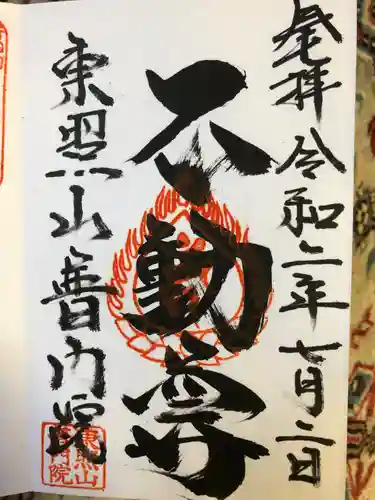 発拝 令和二年七月二日
不動尊
東照山普門院
東照山
普門院